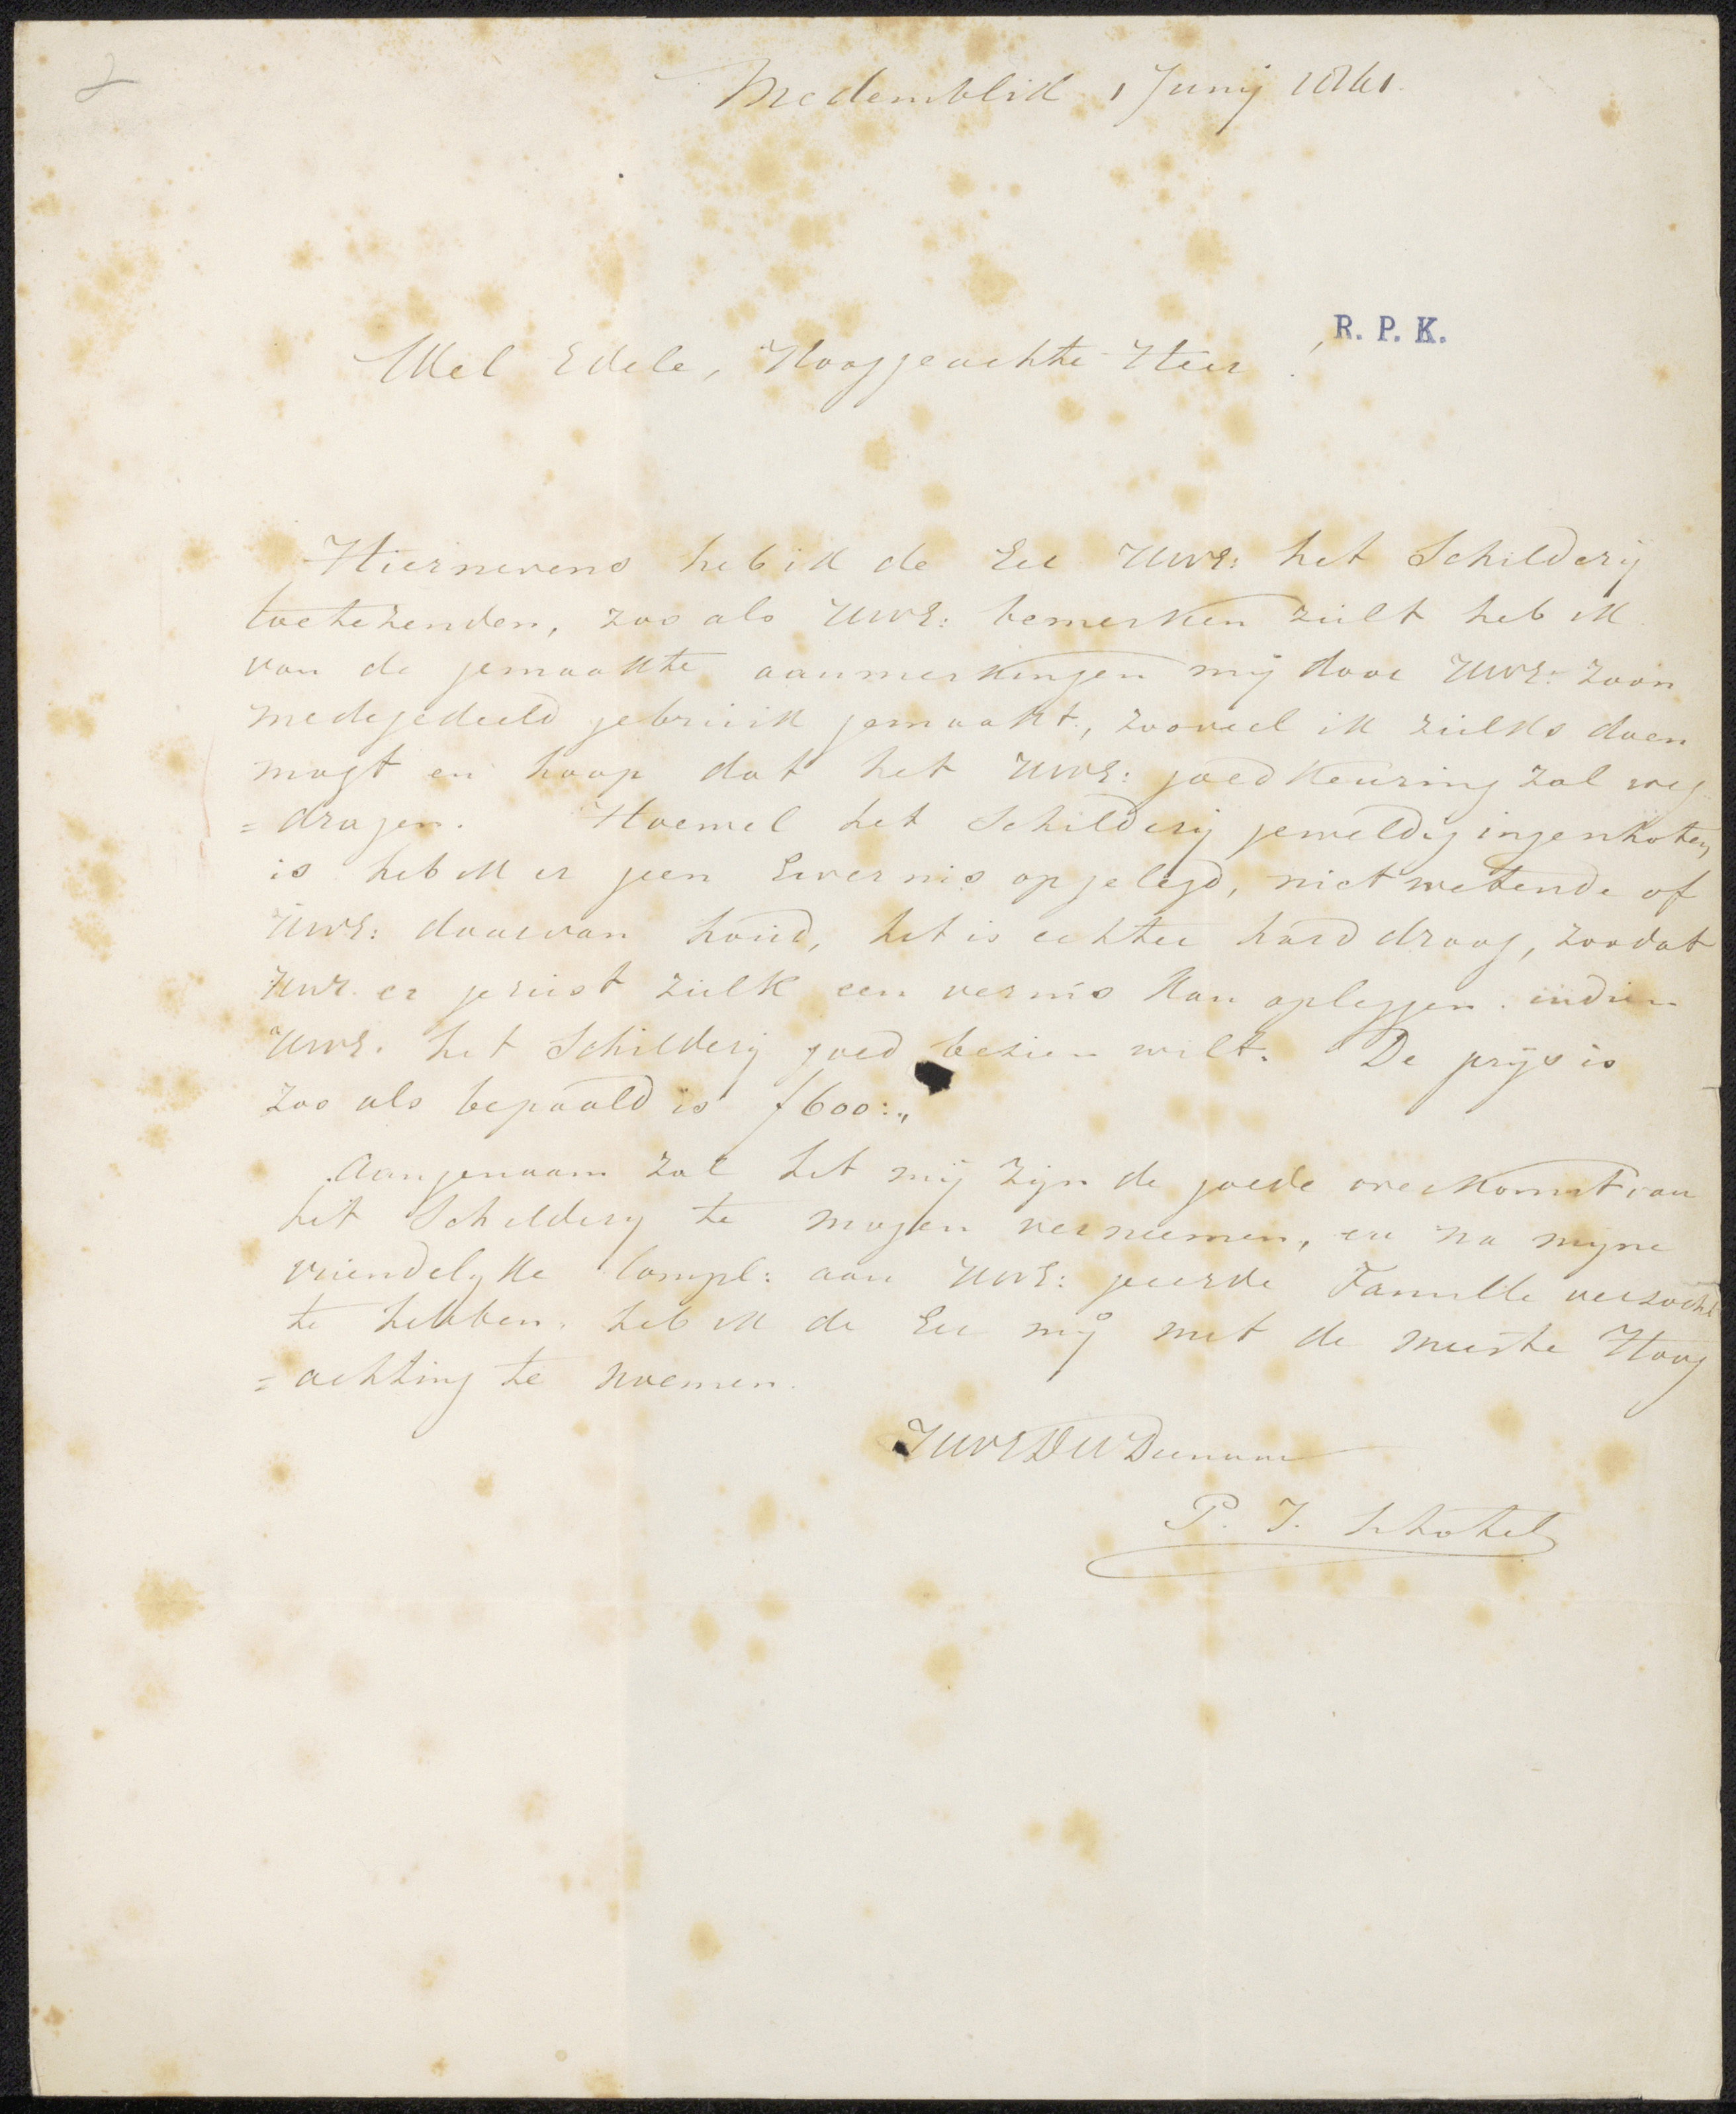 Medemblik 1 Junij 1841.
R. P. K.
Wel Edele, Hooggeachte Heer!
Hiernevens heb ik de Eer UwE: het Schilderij
toetezenden, zoo als UwE: bemerken zult heb ik
van de gemaakte aanmerkingen mij door UwE: zoon
medegedeeld gebruik gemaakt, zooveel ik zulks doen
mogt en hoop dat het UwE: goedkeuring zal weg
= dragen. Hoewel het Schilderij geweldig ingeschoten
is heb ik er geen Eivernis opgelegd, niet wetende of
UwE: daarvan houd, het is echter hard droog, zoodat
UwE. er gerust zulk een vernis kan opleggen. indien
UwE. het Schilderij goed bezien wilt. De prijs is
zoo als bepaald is f600:„
Aangenaam zal het mij zijn de goede overkomst van
het Schilderij te mogen verneemen, en na mijne
vriendelijke Compl: aan UwE: geeerde Famille verzocht
te hebben, heb ik de Eer mij met de meeste Hoog
= achting te noemen.
UWEDWDienaar
P. J. Schotel